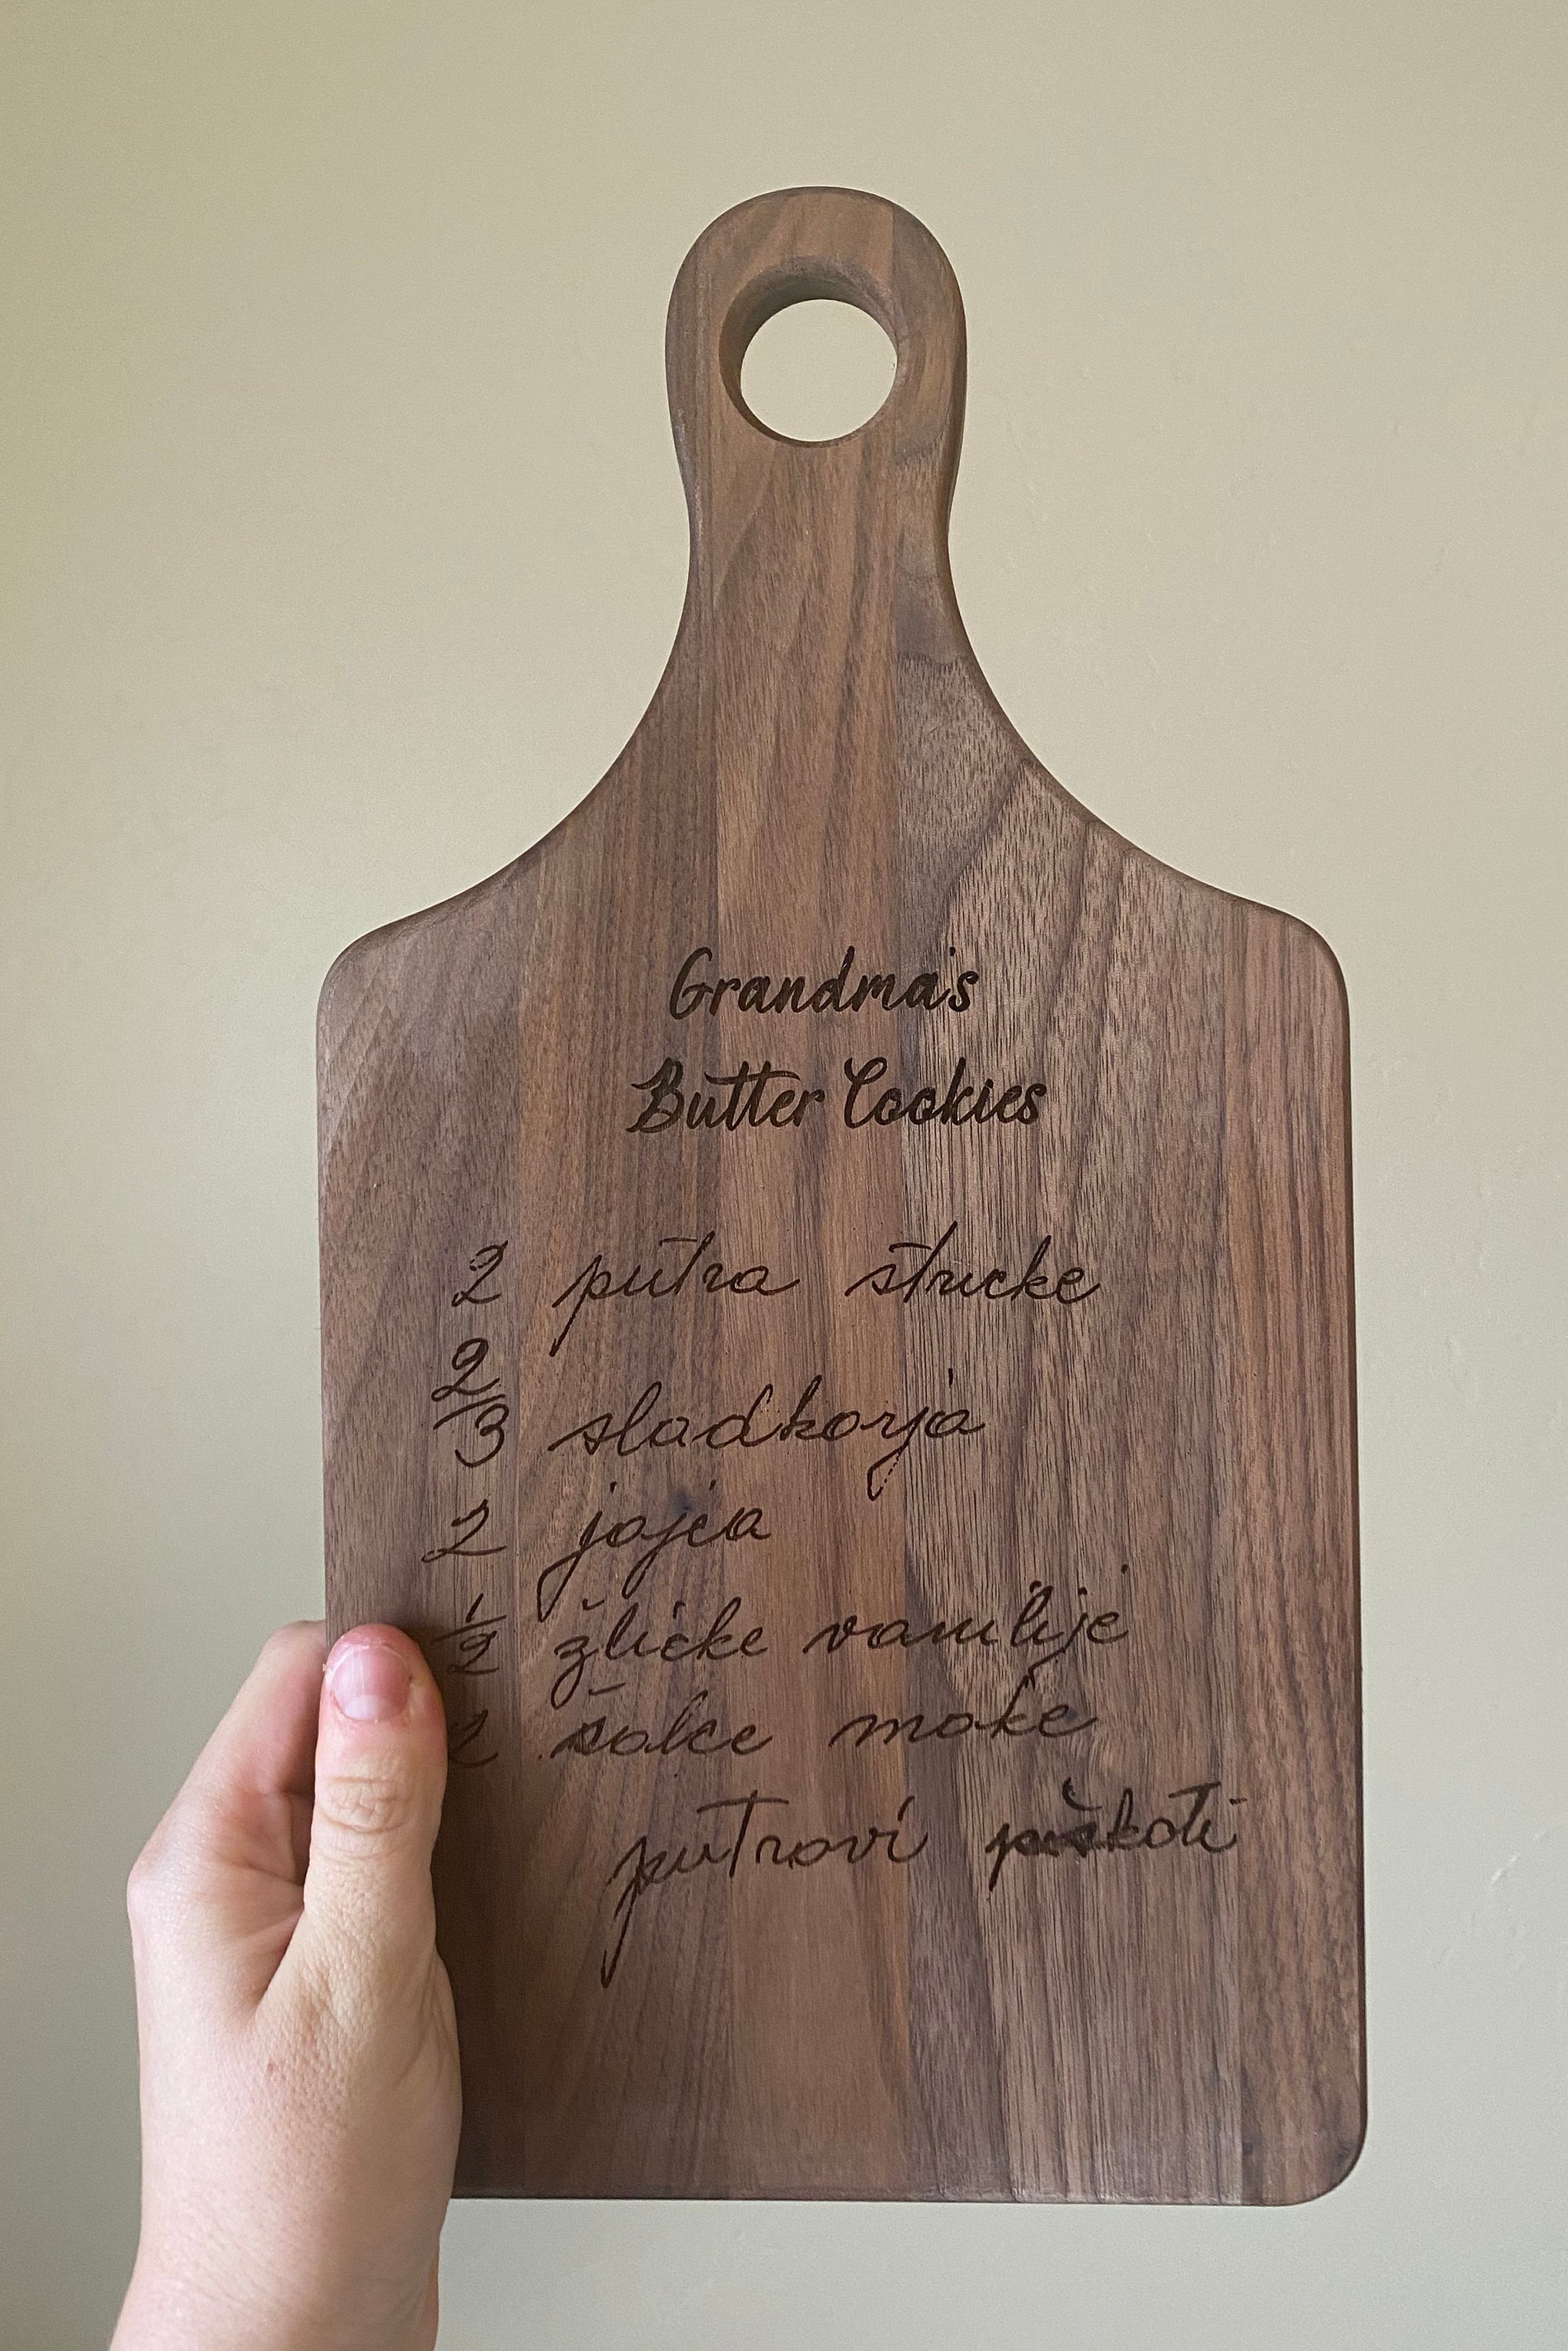 Grandma's
Butter Cookies
2 putra štrucke
2/3 sladkorja
2 jajca
1/2 žličke vanilije
2 šalce moke
putrovi piškoti